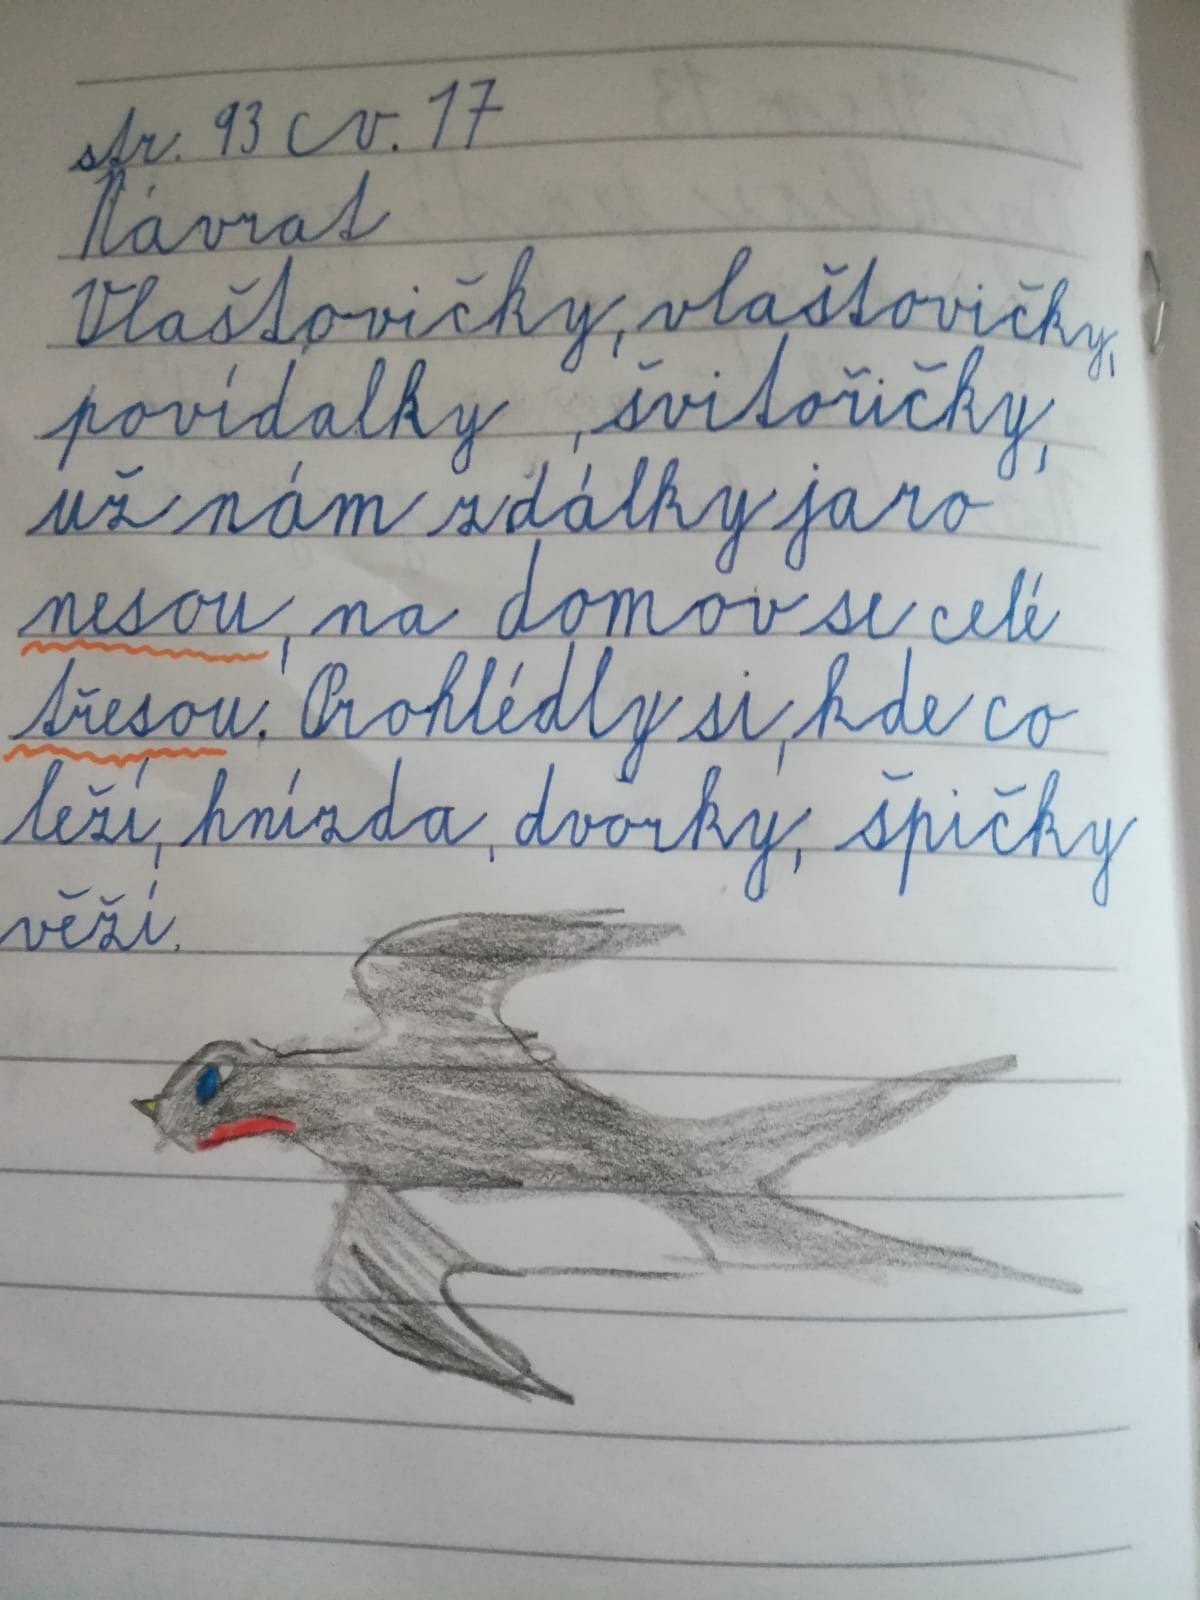 str. 93 cv. 17
Návrat
Vlaštovičky, vlaštovičky,
povídalky, švitořičky,
už nám zdálky jaro
nesou, na domov se celé
třesou. Prohlédly si, kde co
leží, hnízda, dvorky, špičky
věží.